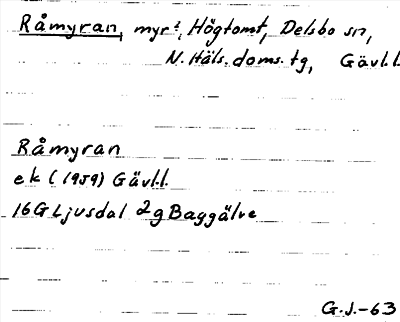 Råmyran, myr², Högtomt, Delsbo sn,
N. Häls. doms. tg, Gävl.l.
Råmyran
ek (1959) Gävl.l.
16G Ljusdal 2g Baggälve
G.J.-63